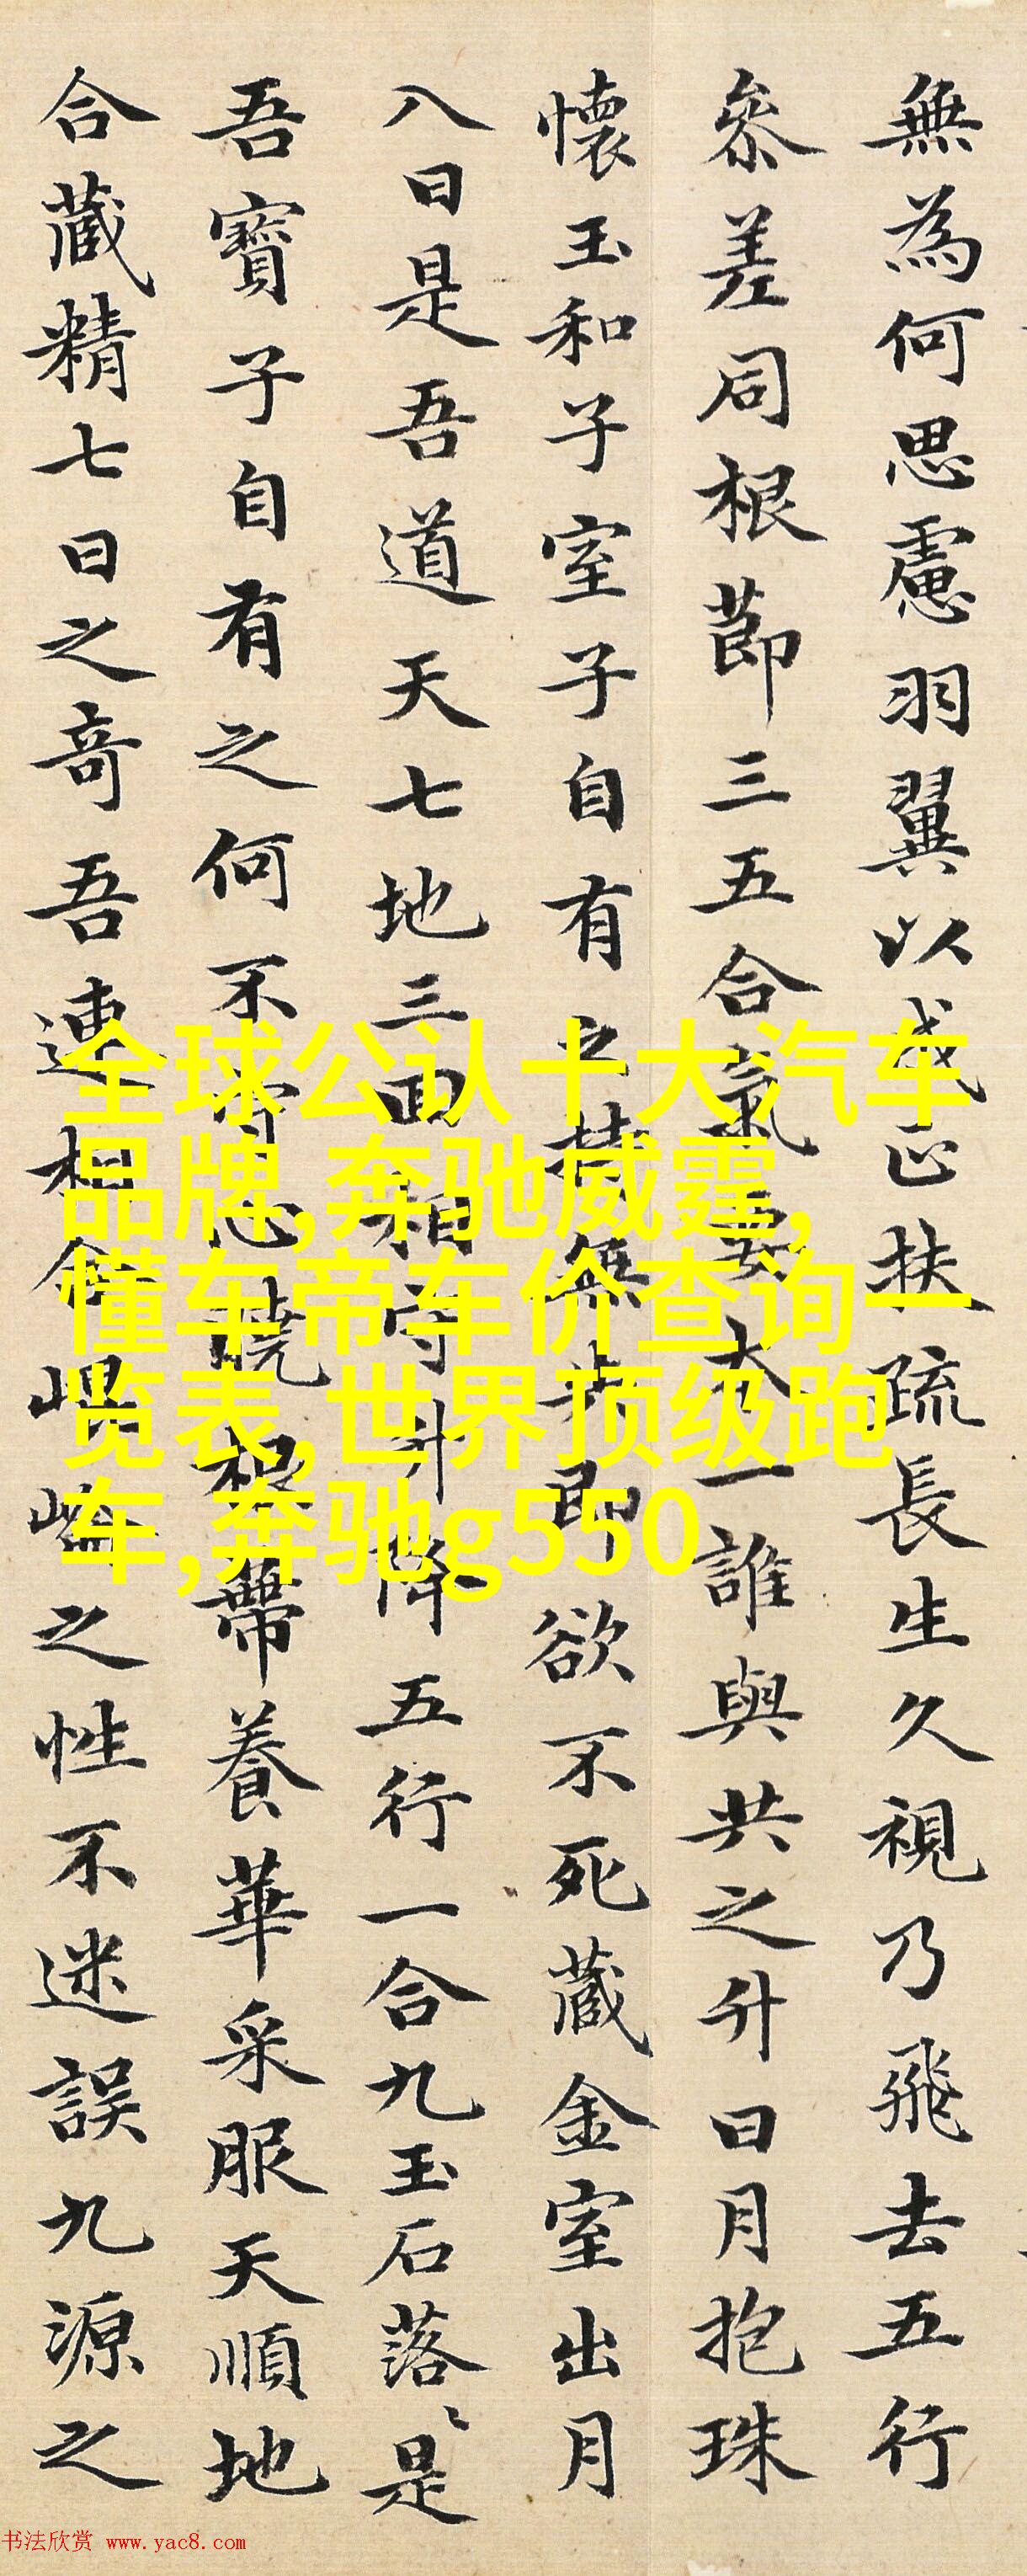 無為何思慮羽翼以成正扶疏長生久視乃飛去五行
參差同根節三五合氣要本一誰與共之升日月抱珠
懷玉和子室子自有之持無失即欲不死藏金室出月
八日是吾道天七地三回相守升降五行一合九玉石落〻是
吾寶子自有之何不守心曉根蔕養華采服天順地
合藏精七日之奇吾連相合崐崘之性不迷誤九源之
全球公认十大汽车
品牌,奔驰威霆,
懂车帝车价查询一
览表,世界顶级跑
车,奔驰g550
书法欣赏 www.yac8.com